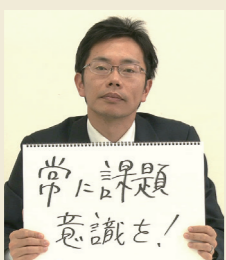 常に課題
意識を!